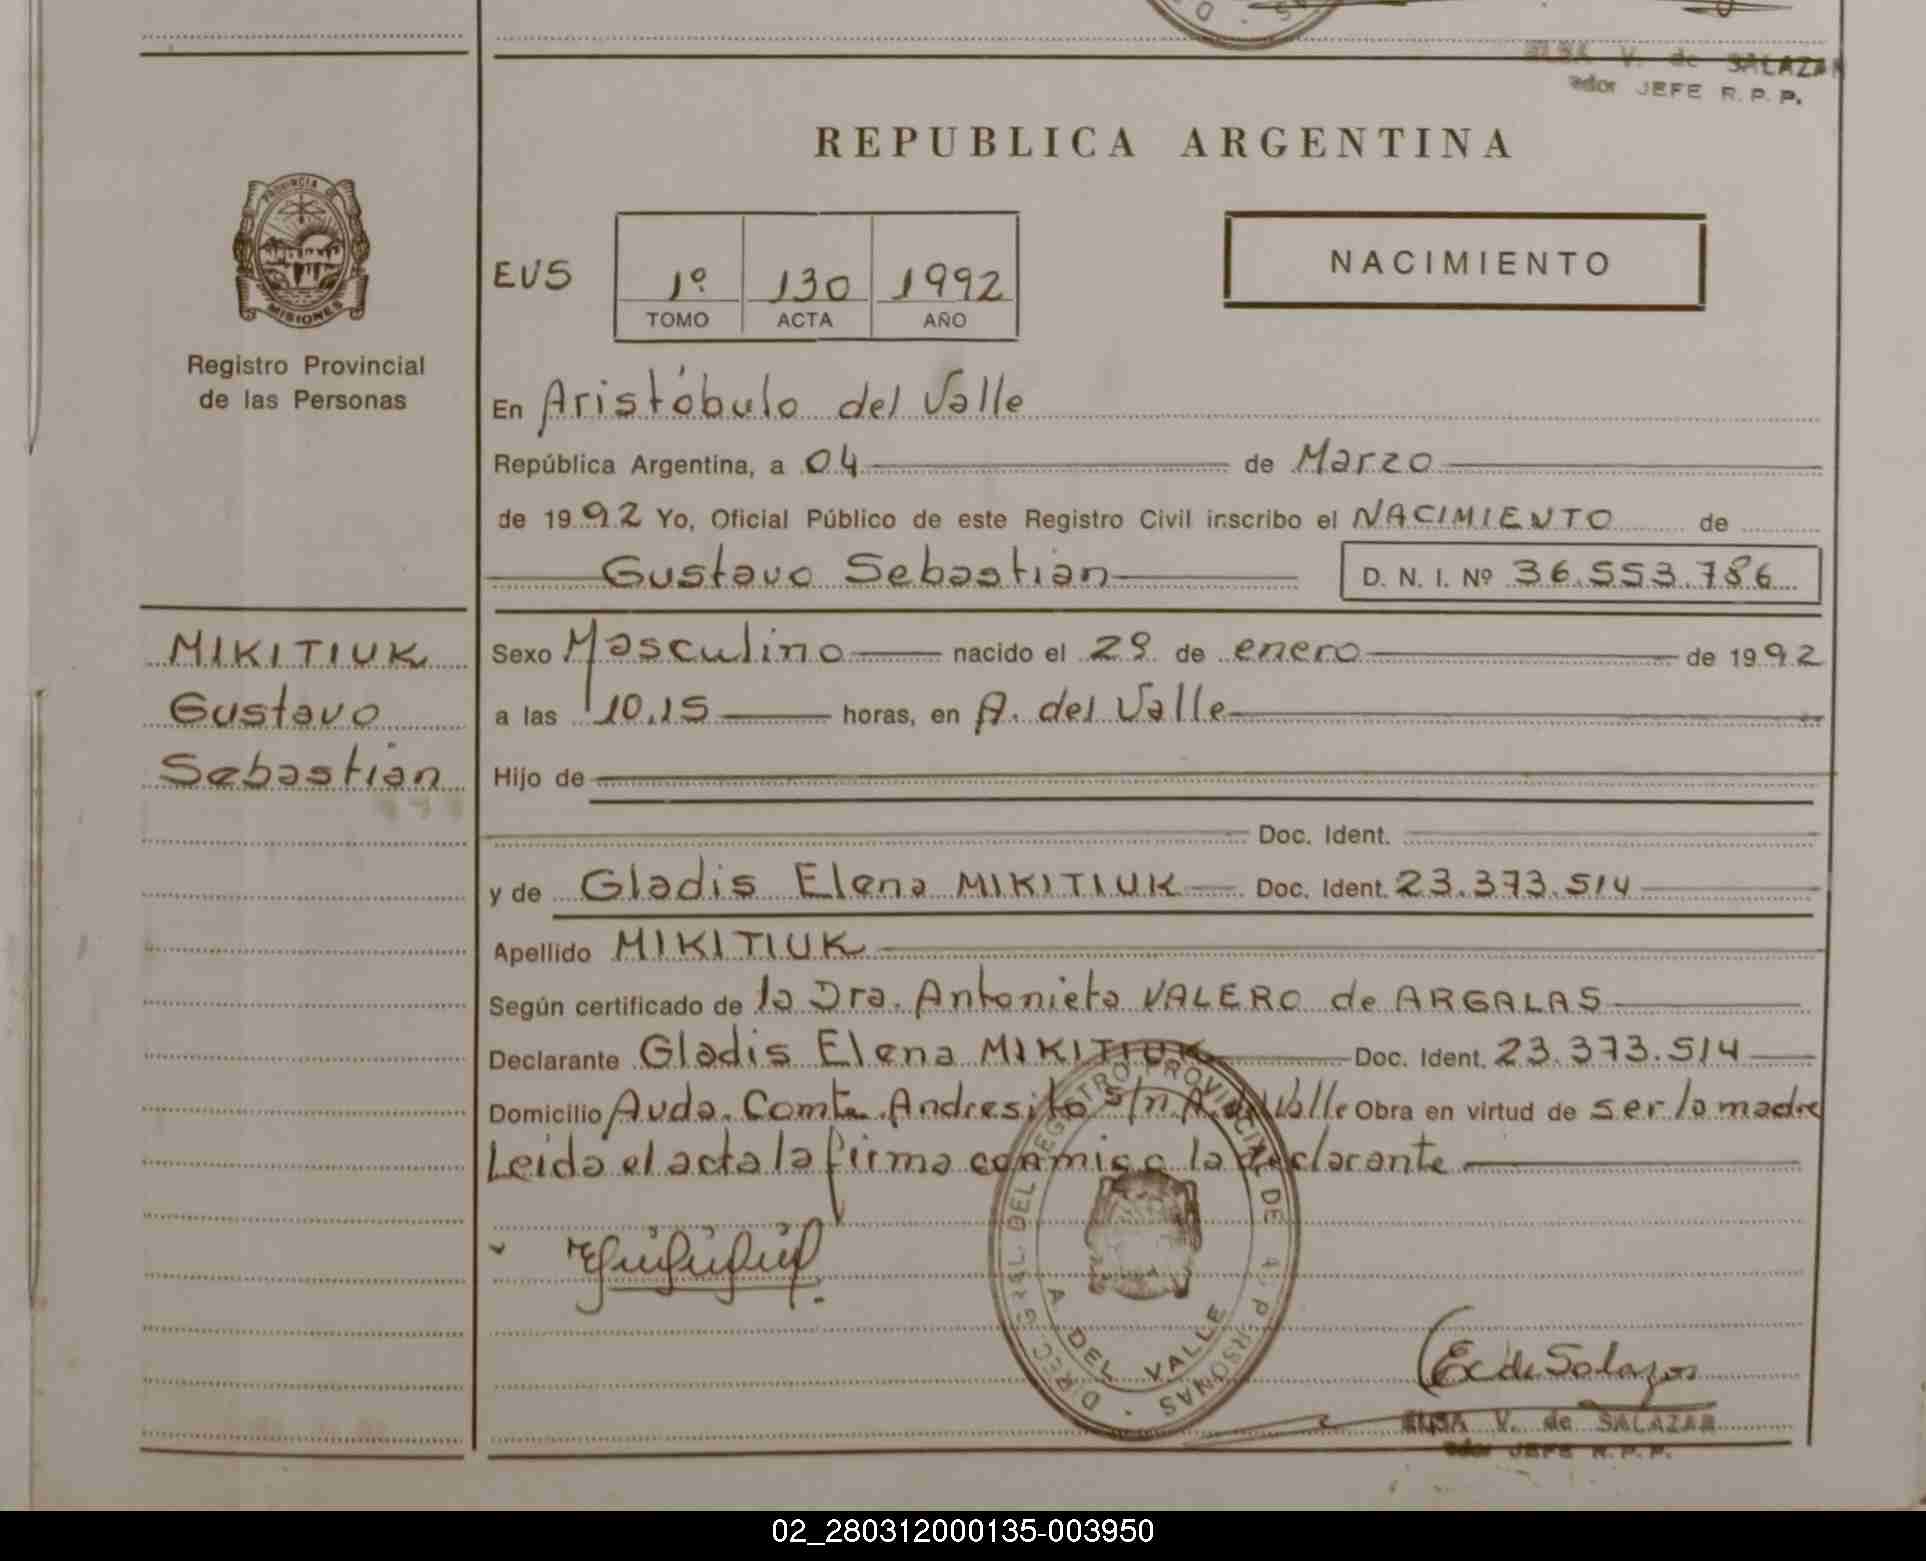 ELSA V. de SALAZAR
JEFE R. P. P.
REPUBLICA ARGENTINA
PROVINCIA DE
MISIONES
Registro Provincial
de las Personas
EVS
1º 130 1992
TOMO ACTA AÑO
NACIMIENTO
En Aristóbulo del Valle
República Argentina, a 04 de Marzo
de 1992 Yo, Oficial Público de este Registro Civil inscribo el NACIMIENTO de
Gustavo Sebastián D. N. I. Nº 36.553.786
MIKITIUK
Gustavo
Sebastián
Sexo Masculino nacido el 29 de enero de 1992
a las 10.15 horas, en A. del Valle
Hijo de
Doc. Ident.
y de Gladis Elena MIKITIUK Doc. Ident. 23.373.514
Apellido MIKITIUK
Según certificado de la Dra. Antonieta VALERO de ARGALAS
Declarante Gladis Elena MIKITIUK Doc. Ident. 23.373.514
Domicilio Avda. Comte. Andresito s/n A. del Valle Obra en virtud de ser la madre
Leida el acta la firma conmigo la declarante
DIREC. GRAL. DEL REGISTRO PROVINCIAL DE PERSONAS
A DEL VALLE
E V de Salazar
ELSA V. de SALAZAR
JEFE R. P. P.
02_280312000135-003950